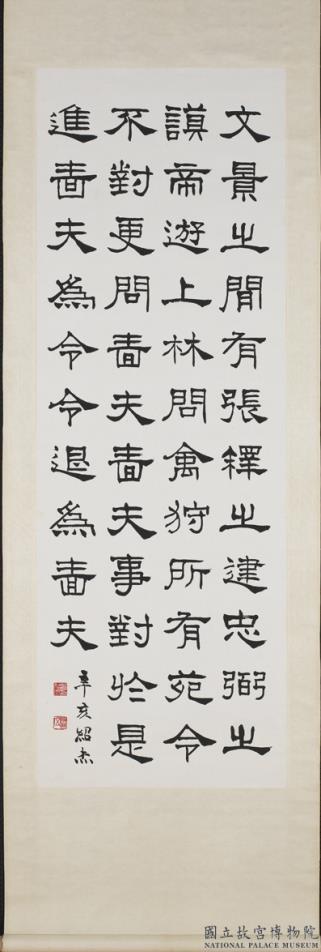 文景之間有張釋之建忠弼之
謨帝遊上林問禽狩所有苑令
不對更問嗇夫嗇夫事對於是
進嗇夫為令令退為嗇夫
辛亥紹杰
國立故宮博物院
NATIONAL PALACE MUSEUM